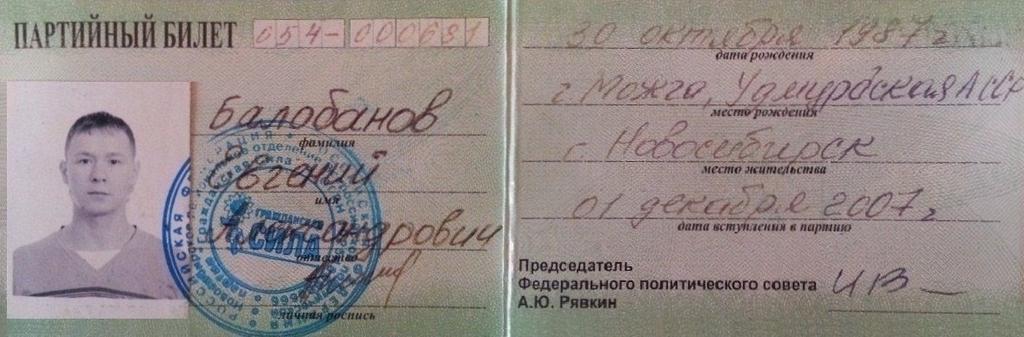 ПАРТИЙНЫЙ БИЛЕТ 054-000681
Балобанов
фамилия
Евгений
имя
Александрович
отчество
личная роспись
ГРАЖДАНСКАЯ
СИЛА
30 октября 1987 г
дата рождения
г Можга, Удмуртская АССР
место рождения
г. Новосибирск
место жительства
01 декабря 2007 г
дата вступления в партию
Председатель
Федерального политического совета
А.Ю. Рявкин